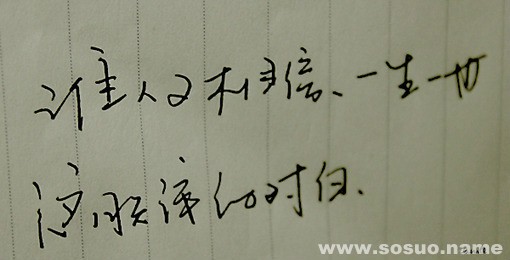 谁人又相信、一生一世
这肤浅的对白、
www.sosuo.name